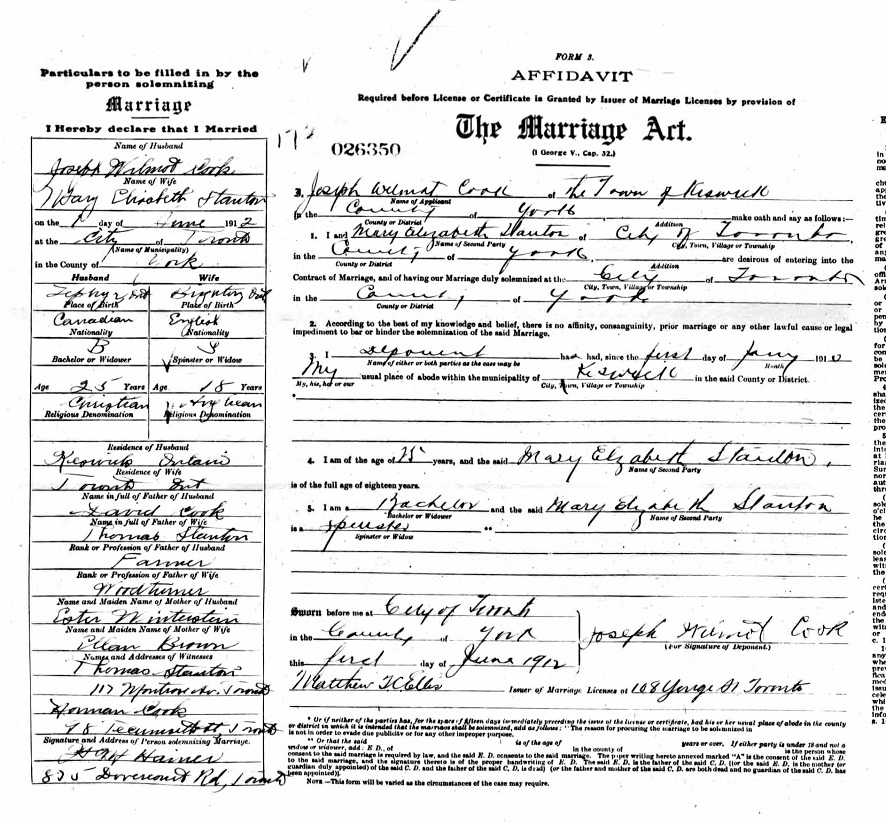 Particulars to be filled in by the
person solemnizing
Marriage
I Hereby declare that I Married
Name of Husband
Joseph Wilmot Cook
Name of Wife
Mary Elizabeth Stanton
on the 1 day of June 1912
at the City of Toronto
(Name of Municipality)
in the County of York
Husband Wife
Zephyr Ont Brighton
Place of Birth Place of Birth
Canadian English
Nationality Nationality
B S
Bachelor or Widower Spinster or Widow
Age 25 Years Age 18 Years
Christian Anglican
Religious Denomination Religious Denomination
Residence of Husband
Keswick Ontario
Residence of Wife
Toronto Ont
Name in full of Father of Husband
David Cook
Name in full of Father of Wife
Thomas Stanton
Rank or Profession of Father of Husband
Farmer
Rank or Profession of Father of Wife
Woodturner
Name and Maiden Name of Mother of Husband
Ester Winterstein
Name and Maiden Name of Mother of Wife
Ellen Brown
Names and Addresses of Witnesses
Thomas Stanton
117 Montrose Av. Toronto
Herman Cook
98 Tecumseth St, Toronto
Signature and Address of Person solemnizing Marriage.
Hainer
835 Dovercourt Rd, Toronto
FORM 3.
AFFIDAVIT
Required before License or Certificate is Granted by Issuer of Marriage Licenses by provision of
The Marriage Act.
(1 George V., Cap. 32.)
026350
I, Joseph Wilmot Cook of The Town of Keswick
Name of Applicant
in the County of York make oath and say as follows:—
County or District Addition
1. I and Mary Elizabeth Stanton of City of Toronto,
Name of Second Party City, Town, Village or Township
in the County of York, are desirous of entering into the
County or District Addition
Contract of Marriage, and of having our Marriage duly solemnized at the City of Toronto
City, Town, Village or Township
in the County of York
County or District
2. According to the best of my knowledge and belief, there is no affinity, consanguinity, prior marriage or any other lawful cause or legal
impediment to bar or hinder the solemnization of the said Marriage.
3. I Deponent had, since the first day of 191
Name of either or both parties as the case may be Month
My usual place of abode within the municipality of Keswick in the said County or District.
My, his, her or our City, Town, Village or Township
4. I am of the age of 25 years, and the said Mary Elizabeth Stanton,
Name of Second Party
is of the full age of eighteen years.
5. I am a Bachelor and the said Mary Elizabeth Stanton
Bachelor or Widower Name of Second Party
is a Spinster **
Spinster or Widow
Sworn before me at City of Toronto
in the County of York
Joseph Wilmot Cook
(For Signature of Deponent.)
this first day of June 1912
Matthew Ellis Issuer of Marriage Licenses at 108 Yonge St Toronto
* Or if neither of the parties has, for the space of fifteen days immediately preceding the issue of the license or certificate, had his or her usual place of abode in the county
or district in which it is intended that the marriage shall be solemnized, add as follows: "The reason for procuring the marriage to be solemnized in
is not in order to evade due publicity or for any other improper purpose.
** Or that the said is of the age of years or over. If either party is under 18 and not a
widow or widower, add: E. D., of in the county of is the person whose
consent to the said marriage is required by law, and the said E. D. consents to the said marriage. The paper writing hereto annexed marked "A" is the consent of the said E. D.
to the said marriage, and the signature thereto is of the proper handwriting of E. D. The said E. D. is the father of the said C. D. [(or the said E. D. is the mother (or
guardian duly appointed) of the said C. D. and the father of the said C. D. is dead) (or the father and mother of the said C. D. are both dead and no guardian of the said C. D. has
been appointed)].
NOTE.—This form will be varied as the circumstances of the case may require.